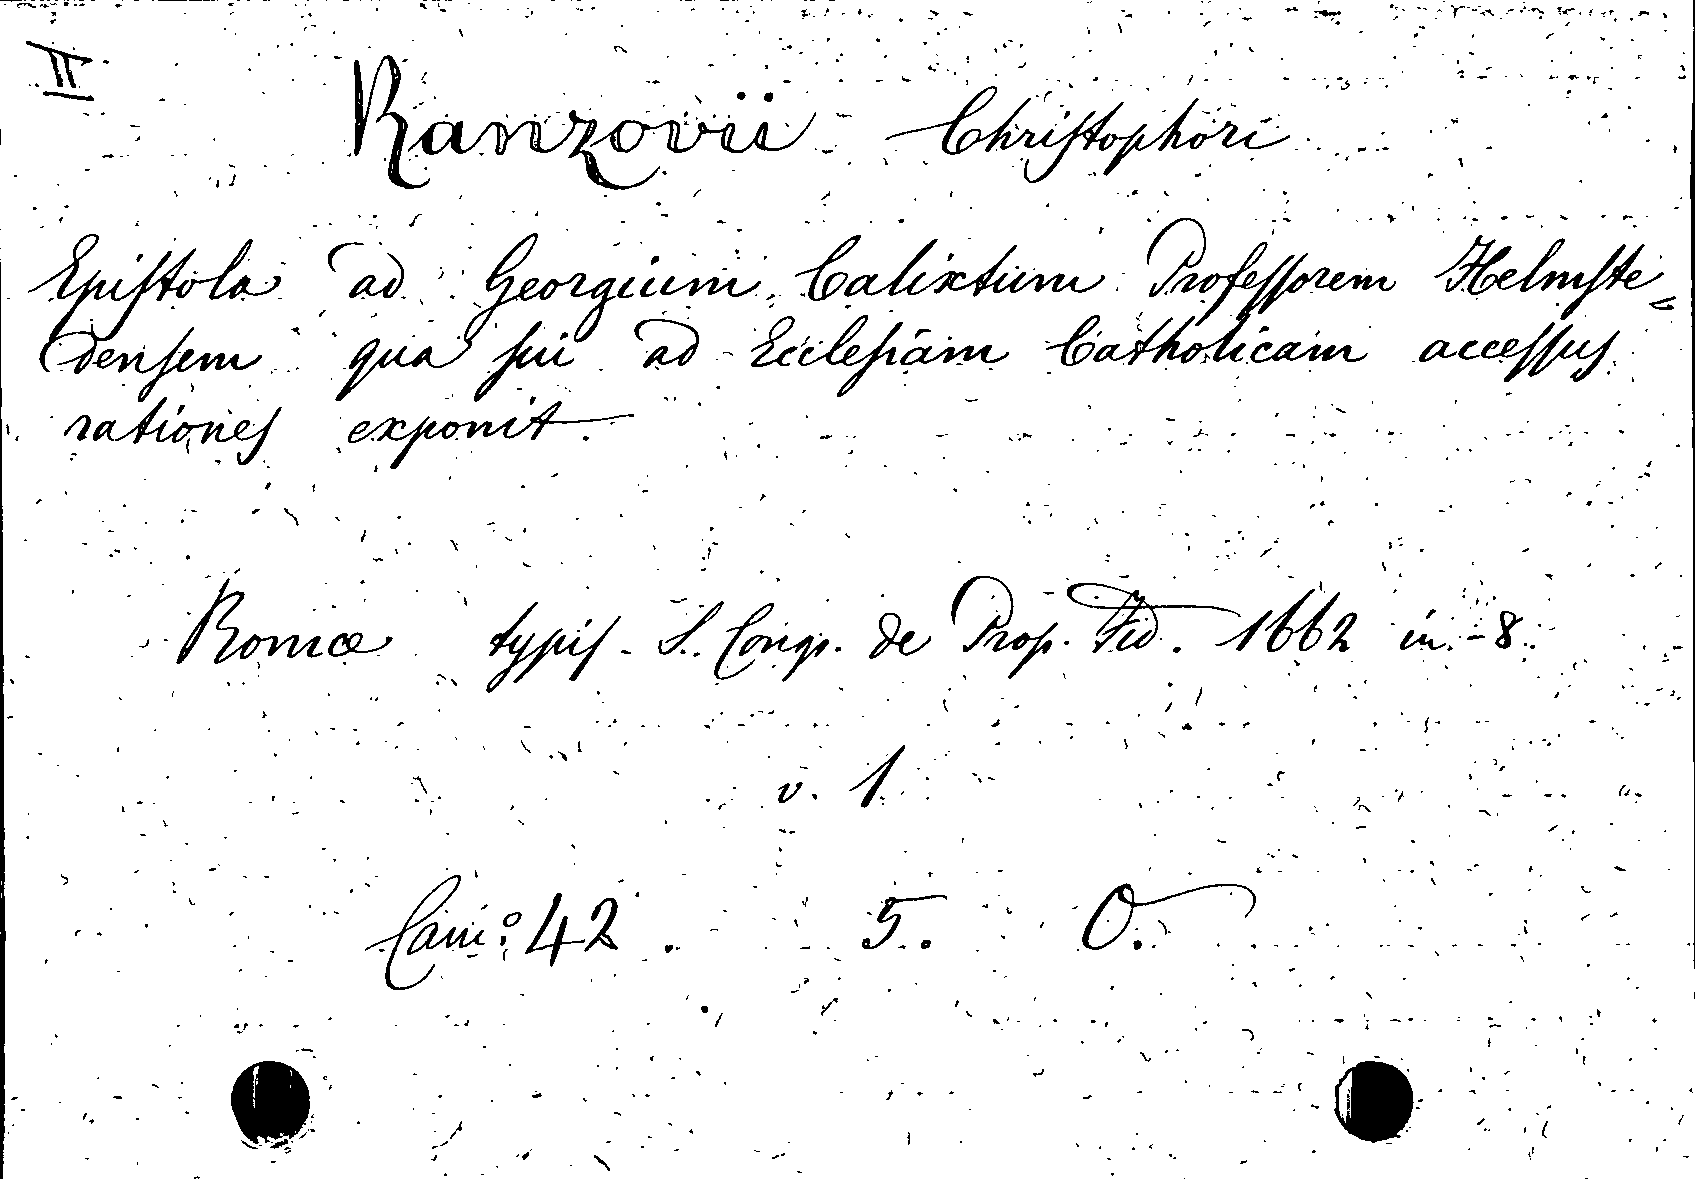 II
Ranzovii Christophori
Epistola ad Georgium Calixtum Professorem Helmste=
densem qua sui ad Ecclesiam Catholicam accessus
rationes exponit.
Romæ typis S. Cong. de Prop. Fid. 1662 in-8.
v. 1
Cam.º 42. 5. O.